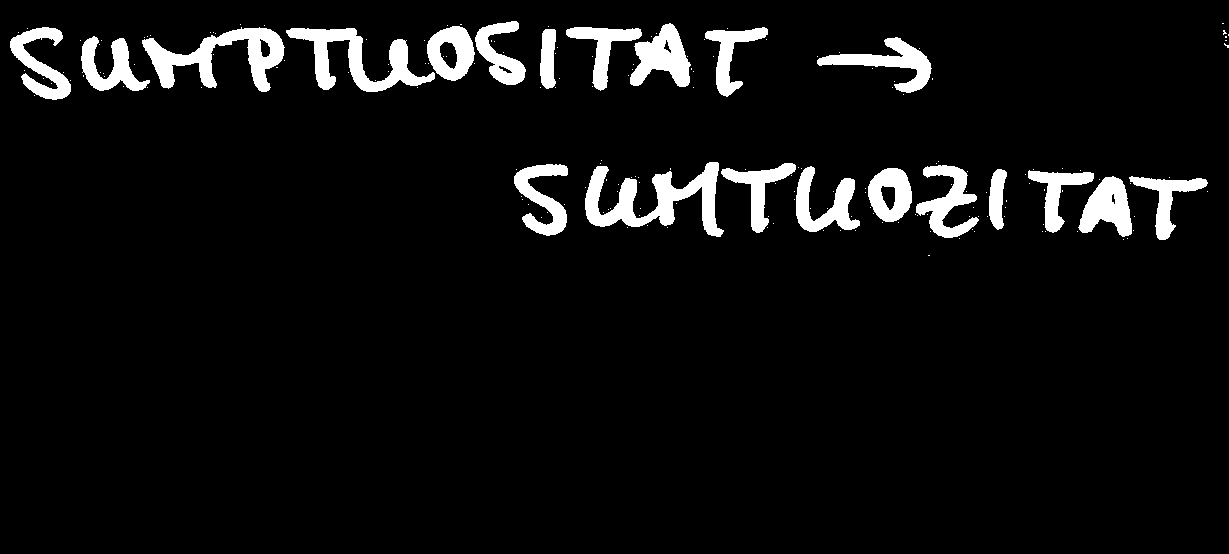 SUMPTUOSITAT →
SUMTUOZITAT